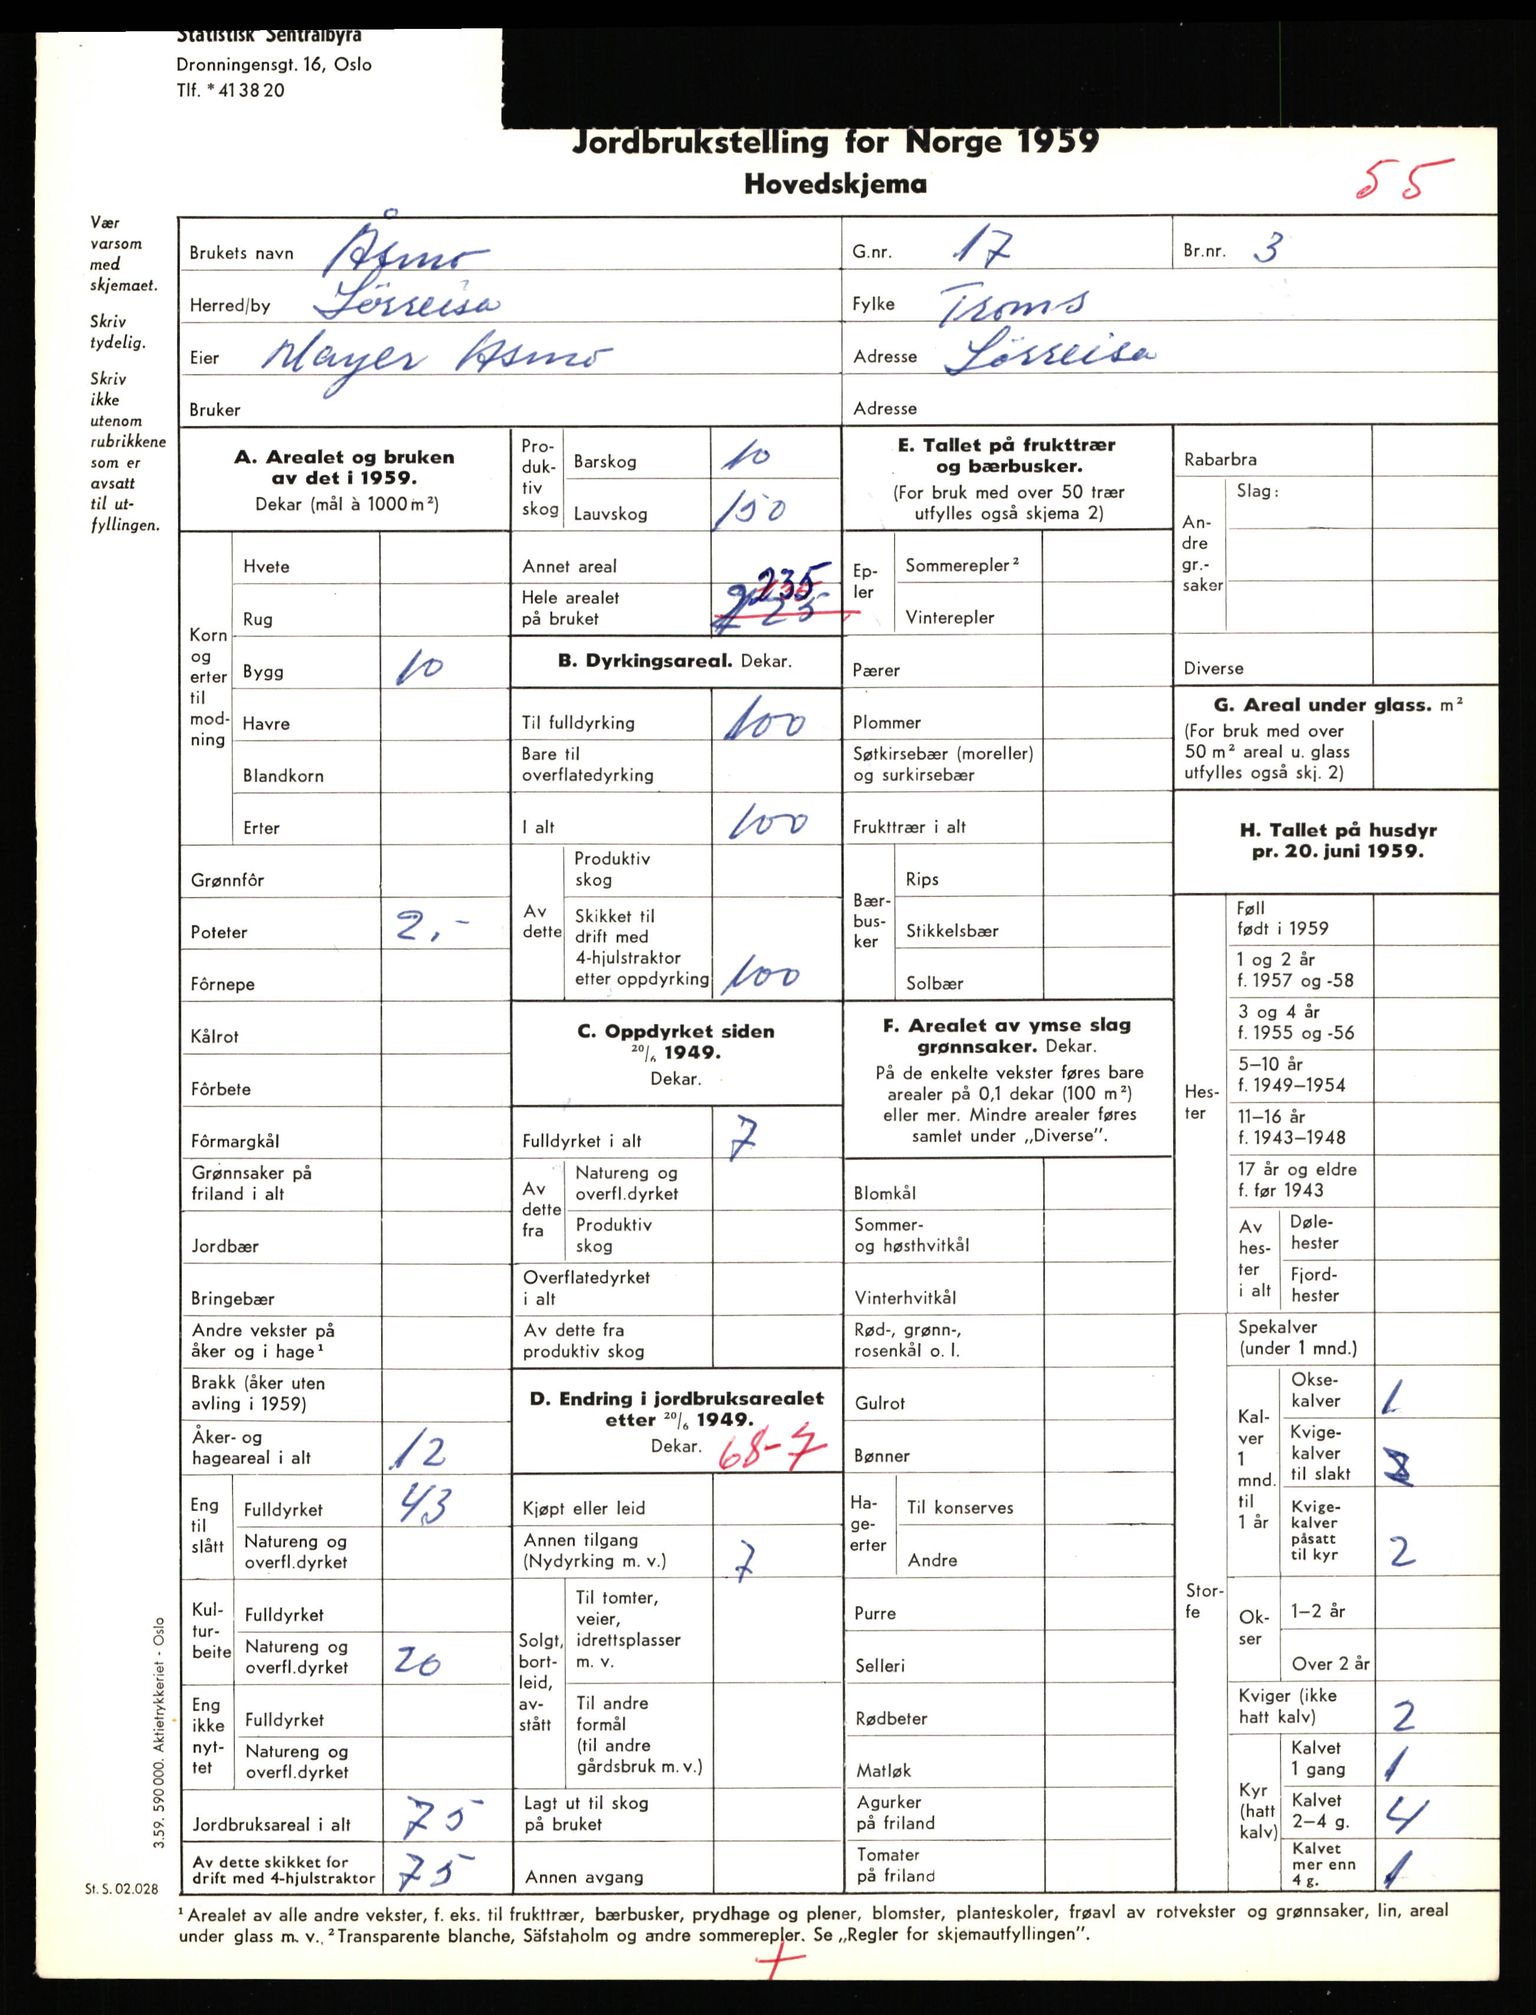 Statistisk Sentralbyrå
Dronningensgt. 16, Oslo
Tlf. * 41 38 20
Jordbrukstelling for Norge 1959
Hovedskjema
55
Vær
varsom
med
skjemaet.
Skriv
tydelig.
Skriv
ikke
utenom
rubrikkene
som er
avsatt
til ut-
fyllingen.
Brukets navn Åsmo
G.nr. 17
Br.nr. 3
Herred/by Sörreisa
Fylke Troms
Eier Mayer Åsmo
Adresse Sörreisa
Bruker
Adresse
A. Arealet og bruken
av det i 1959.
Dekar (mål à 1000 m²)
Korn
og
erter
til
mod-
ning
Hvete
Rug
Bygg 10
Havre
Blandkorn
Erter
Grønnfôr
Poteter 2,-
Fôrnepe
Kålrot
Fôrbete
Fôrmargkål
Grønnsaker på
friland i alt
Jordbær
Bringebær
Andre vekster på
åker og i hage¹
Brakk (åker uten
avling i 1959)
Åker- og
hageareal i alt 12
Eng
til
slått
Fulldyrket 43
Natureng og
overfl.dyrket
Kul-
tur-
beite
Fulldyrket
Natureng og
overfl.dyrket 20
Eng
ikke
nyt-
tet
Fulldyrket
Natureng og
overfl.dyrket
Jordbruksareal i alt 75
Av dette skikket for
drift med 4-hjulstraktor 75
Pro-
duk-
tiv
skog
Barskog 10
Lauvskog 150
Annet areal
Hele arealet
på bruket 235
B. Dyrkingsareal. Dekar.
Til fulldyrking 100
Bare til
overflatedyrking
I alt 100
Av
dette
Produktiv
skog
Skikket til
drift med
4-hjulstraktor
etter oppdyrking 100
C. Oppdyrket siden
20/6 1949.
Dekar.
Fulldyrket i alt 7
Av
dette
fra
Natureng og
overfl.dyrket
Produktiv
skog
Overflatedyrket
i alt
Av dette fra
produktiv skog
D. Endring i jordbruksarealet
etter 20/6 1949.
Dekar. 68-7
Kjøpt eller leid
Annen tilgang
(Nydyrking m. v.) 7
Solgt,
bort-
leid,
av-
stått
Til tomter,
veier,
idrettsplasser
m. v.
Til andre
formål
(til andre
gårdsbruk m. v.)
Lagt ut til skog
på bruket
Annen avgang
E. Tallet på frukttrær
og bærbusker.
(For bruk med over 50 trær
utfylles også skjema 2)
Ep-
ler
Sommerepler²
Vinterepler
Pærer
Plommer
Søtkirsebær (moreller)
og surkirsebær
Frukttrær i alt
Bær-
bus-
ker
Rips
Stikkelsbær
Solbær
F. Arealet av ymse slag
grønnsaker. Dekar.
På de enkelte vekster føres bare
arealer på 0,1 dekar (100 m²)
eller mer. Mindre arealer føres
samlet under „Diverse”.
Blomkål
Sommer-
og høsthvitkål
Vinterhvitkål
Rød-, grønn-,
rosenkål o. l.
Gulrot
Bønner
Ha-
ge-
erter
Til konserves
Andre
Purre
Selleri
Rødbeter
Matløk
Agurker
på friland
Tomater
på friland
Rabarbra
An-
dre
gr.-
saker
Slag:
Diverse
G. Areal under glass. m²
(For bruk med over
50 m² areal u. glass
utfylles også skj. 2)
H. Tallet på husdyr
pr. 20. juni 1959.
Hes-
ter
Føll
født i 1959
1 og 2 år
f. 1957 og -58
3 og 4 år
f. 1955 og -56
5–10 år
f. 1949–1954
11–16 år
f. 1943–1948
17 år og eldre
f. før 1943
Av
hes-
ter
i alt
Døle-
hester
Fjord-
hester
Stor-
fe
Spekalver
(under 1 mnd.)
Kal-
ver
1
mnd.
til
1 år
Okse-
kalver 1
Kvige-
kalver
til slakt
Kvige-
kalver
påsatt
til kyr 2
Ok-
ser
1–2 år
Over 2 år
Kviger (ikke
hatt kalv) 2
Kyr
(hatt
kalv)
Kalvet
1 gang 1
Kalvet
2–4 g. 4
Kalvet
mer enn
4 g. 1
3.59. 590 000. Aktietrykkeriet - Oslo
St. S. 02.028
¹ Arealet av alle andre vekster, f. eks. til frukttrær, bærbusker, prydhage og plener, blomster, planteskoler, frøavl av rotvekster og grønnsaker, lin, areal
under glass m. v. ² Transparente blanche, Säfstaholm og andre sommerepler. Se „Regler for skjemautfyllingen”.
+